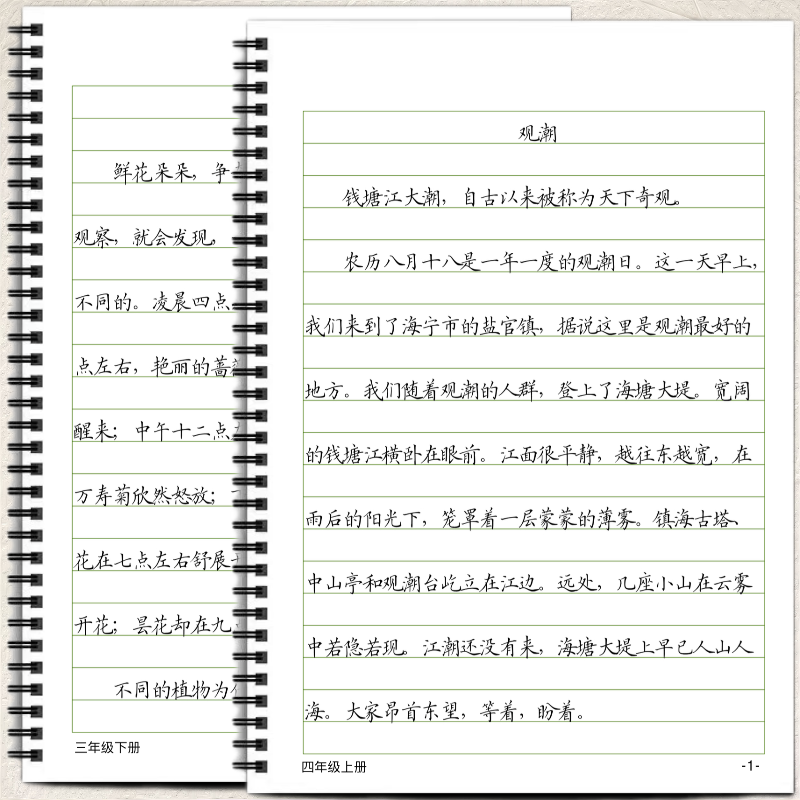 鲜花朵朵，争
观察，就会发现，
不同的。凌晨四点
点左右，艳丽的蔷
醒来；中午十二点
万寿菊欣然怒放；
花在七点左右舒展
开花；昙花却在九
不同的植物为
三年级下册
观潮
钱塘江大潮，自古以来被称为天下奇观。
农历八月十八是一年一度的观潮日。这一天早上，
我们来到了海宁市的盐官镇，据说这里是观潮最好的
地方。我们随着观潮的人群，登上了海塘大堤。宽阔
的钱塘江横卧在眼前。江面很平静，越往东越宽，在
雨后的阳光下，笼罩着一层蒙蒙的薄雾。镇海古塔、
中山亭和观潮台屹立在江边。远处，几座小山在云雾
中若隐若现。江潮还没有来，海塘大堤上早已人山人
海。大家昂首东望，等着，盼着。
四年级上册
-1-